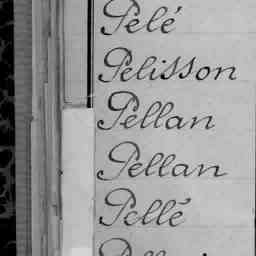 Pelé
Pelisson
Pellan
Pellan
Pellé